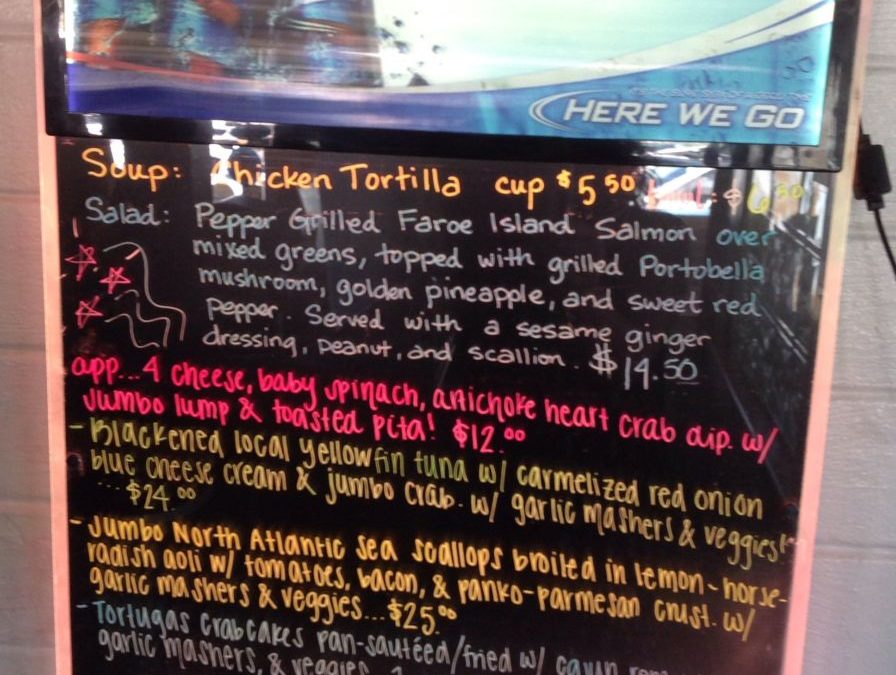 HERE WE GO
Soup: Chicken Tortilla cup $5.50 bowl: $6.50
Salad: Pepper Grilled Faroe Island Salmon over
mixed greens, topped with grilled Portobella
mushroom, golden pineapple, and sweet red
pepper. Served with a sesame ginger
dressing, peanut, and scallion. $14.50
app...4 cheese, baby spinach, artichoke heart crab dip. w/
jumbo lump & toasted pita! $12.00
- Blackened local yellowfin tuna w/ carmelized red onion
blue cheese cream & jumbo crab. w/ garlic mashers & veggies!
... $24.00
- Jumbo North Atlantic Sea scallops broiled in lemon-horse-
radish aoli w/ tomatoes, bacon, & panko-parmesan crust. w/
garlic mashers & veggies...$25.00
- Tortugas crabcakes pan-sautéed/fried w/ cajun
garlic mashers, & veggies